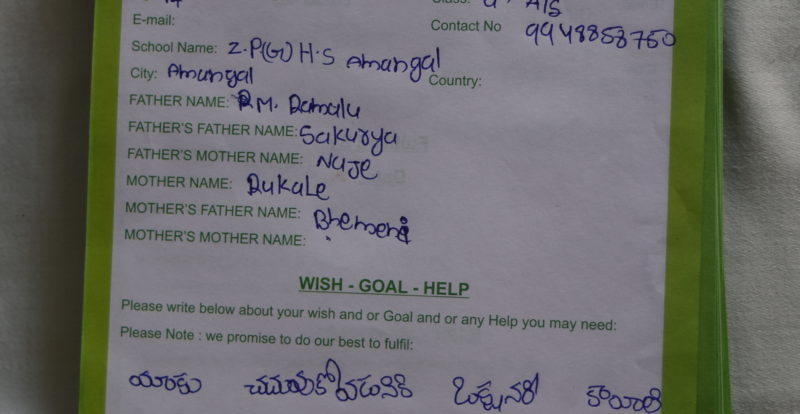 E-mail:
Contact No 9948858750
School Name: Z.P(G) H.S Amangal
City: Amangal Country:
FATHER NAME: R.M. Ramalu
FATHER'S FATHER NAME: Sakurya
FATHER'S MOTHER NAME: Naje
MOTHER NAME: Rukale
MOTHER'S FATHER NAME:
MOTHER'S MOTHER NAME:
WISH - GOAL - HELP
Please write below about your wish and or Goal and or any Help you may need:
Please Note : we promise to do our best to fulfil:
చదువుకోవడానికి కావాలి